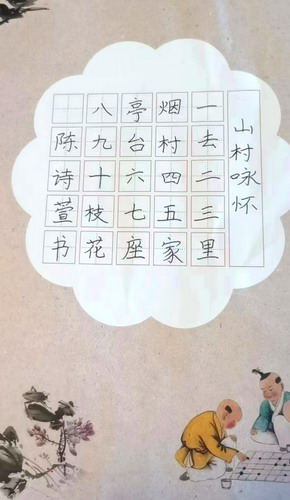 山村咏怀
一去二三里
烟村四五家
亭台六七座
八九十枝花
陈诗萱书